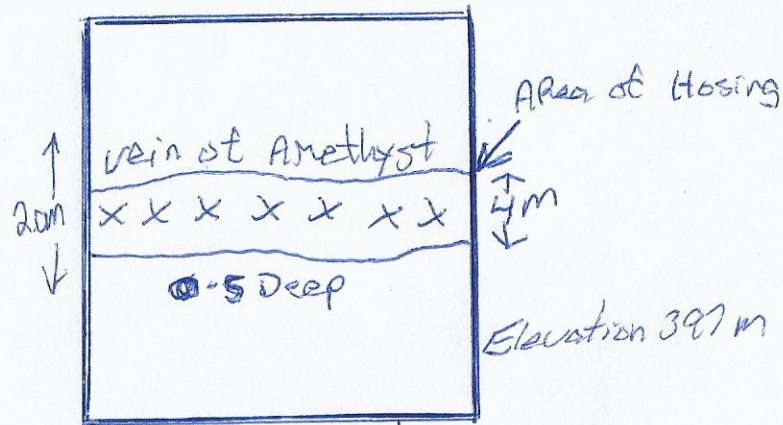 Area of Hosing
vein of Amethyst
20m
X X X X X X X
4m
0.5 Deep
Elevation 397 m